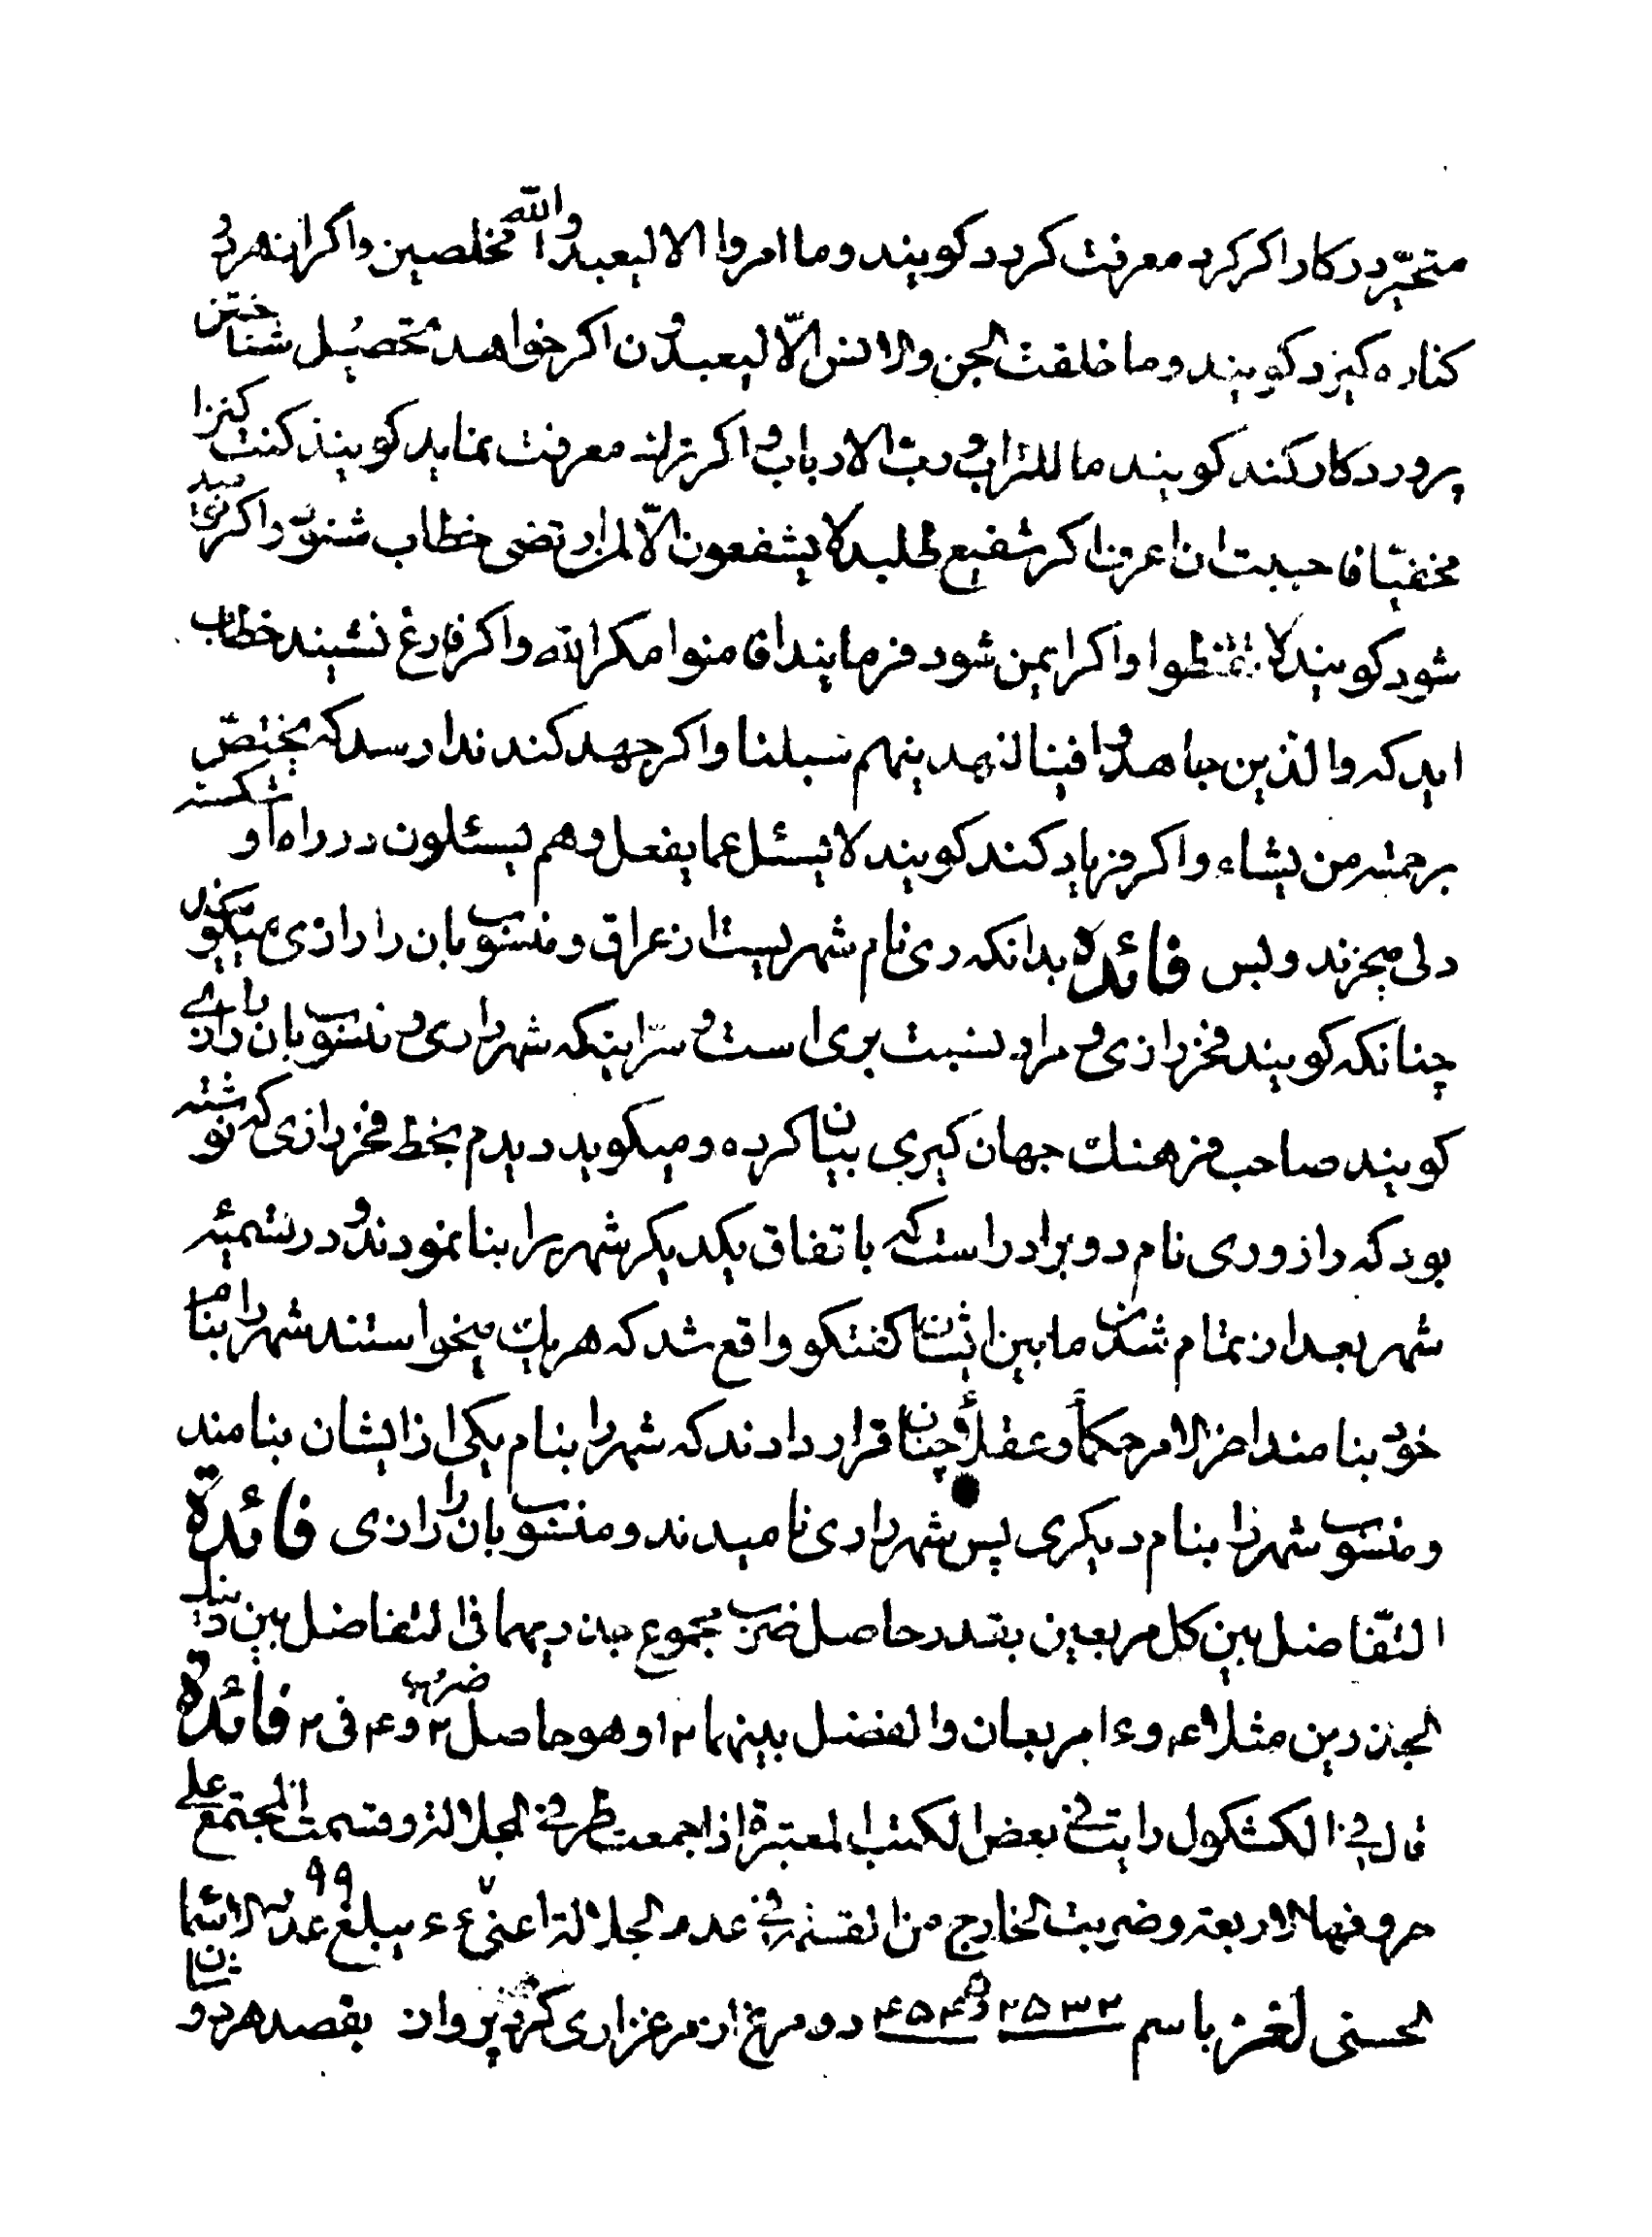 متحیّر در کار اگر گرد معرفت گردد گویند وما امروا الا لیعبدوا الله مخلصین واگر از هر دو
کناره گیرد گویند وما خلقت الجن والانس الّا لیعبدون اگر خواهد تحصیل شناختن
پروردکار کند گویند ما للتراب و رب الارباب و اگر ترک معرفت نماید گویند کنت کنزا
مخفیّا فاحببت ان اعرف اگر شفیع طلبد لا یشفعون الّا لمن ارتضی خطاب شنود و اگر نومید
شود گویند لا تقنطوا و اگر ایمن شود فرمایند افامنوا مکر الله و اگر فارغ نشیند خطاب
اید که والذین جاهدوا فینا لنهدینهم سبلنا و اگر جهد کند ندا رسد که یختص
برحمته من یشاء و اگر فریاد کند گویند لا یسئل عما یفعل وهم یسئلون در راه او شکسته
دلی میخرند و بس فائدة بدانکه ری نام شهریست از عراق و منسوب بان را رازی میگویند
چنانکه گویند فخر رازی و مراد نسبت بری است و سرّ اینکه شهر را ری و منسوب بان را رازی
گویند صاحب فرهنک جهان کیری بیان کرده و میگوید دیدم بخط فخر رازی که نوشته
بود که راز و ری نام دو برادر است که باتفاق یکدیگر شهر را بنا نمودند و در تسمیه
شهر بعد از تمام شدن ما بین ایشان گفتگو واقع شد که هر یک میخواستند شهر را بنام
خود بنامند اخر الامر حکما و عقلا چنان قرار دادند که شهر را بنام یکی از ایشان بنامند
و منسوب شهر را بنام دیگری پس شهر را ری نامیدند و منسوب بان را رازی فائدة
التفاضل بین کل مربعین بقدر حاصل ضرب مجموع جذریهما فی التفاضل بین ذینک
الجذرین مثلا ۴ و ۱۶ مربعان والفضل بینهما ۱۲ وهو حاصل ضرب ۲ و ۴ فی ۲ فائدة
قال فی الکشکول رایت فی بعض الکتب المعتبرة اذا جمعت طرفی الجلالة وقسمت المجتمع علی
حروفها الاربعة وضربت الخارج من القسمة فی عدد الجلالة اعنی ۶۶ یبلغ ۹۹ عدد الاسماء
الحسنی لغز باسم ۲۵۳۲ و ۴۵۴۵ دو مرغ از مرغزاری کرد پرواز بقصد هر دو شان